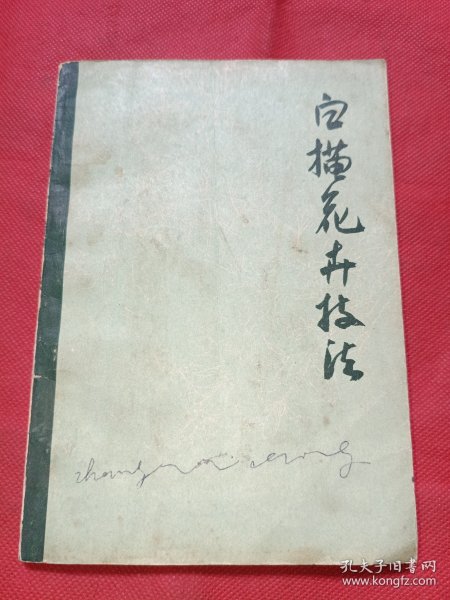 白描花卉技法
zhang
孔夫子旧书网
www.kongfz.com